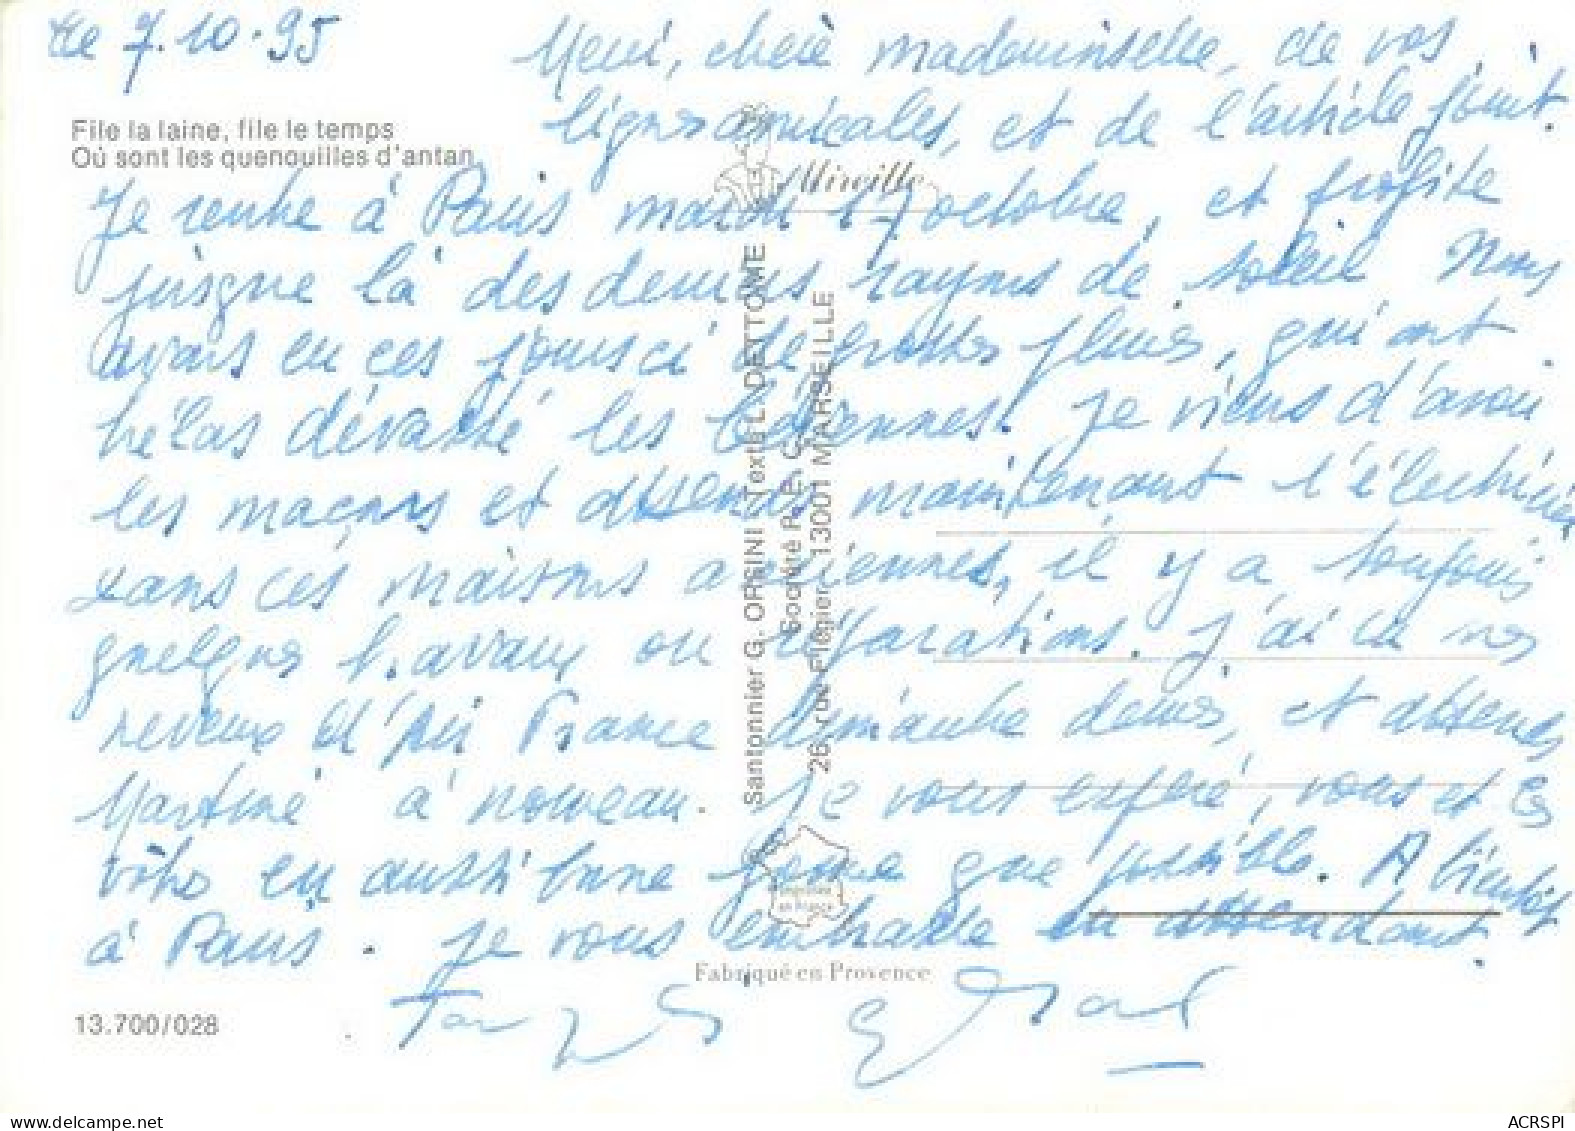 Le 7.10.95
Merci, chère mademoiselle, de vos
lignes amicales, et de l'article joint.
File la laine, file le temps
Où sont les quenouilles d'antan
Mireille
Je rentre à Paris mardi 17 octobre, et profite
jusque là des derniers rayons de soleil Nous
avons eu ces jours ci de grosses pluies, qui ont
hélas dévasté les Cévennes. Je viens d'avoir
les maçons et attends maintenant l'électricien
dans ces maisons anciennes, il y a toujours
quelques travaux ou réparations. J'ai eu mes
neveux d'Air France dimanche dernier, et attends
Martine à nouveau. Je vous espère, vous et les
vôtres en aussi bonne forme que possible. A bientôt
à Paris. Je vous embrasse en attendant.
Santonnier G. ORSINI Texte L. DETTOME
Société P.E.C.
26, rue Flégier 13001 MARSEILLE
Imprimé
en France
Fabriqué en Provence
13.700/028
delcampe.net
ACRSPI